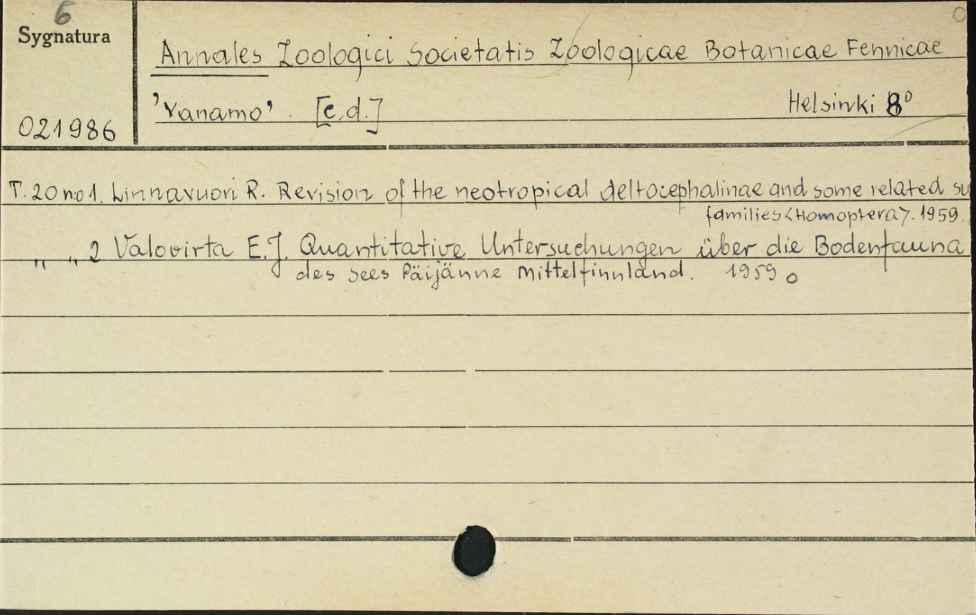 6
Sygnatura
021986
Annales Zoologici Societatis Zoologicae Botanicae Fennicae
'Vanamo'. [e.d.] Helsinki 8°
T. 20 no 1. Linnavuori R. Revision of the neotropical deltocephalinae and some related su
families <Homoptera>. 1959.
" " 2 Valovirta E.J. Quantitative Untersuchungen über die Bodenfauna
des sees Päijänne Mittelfinnland. 1959